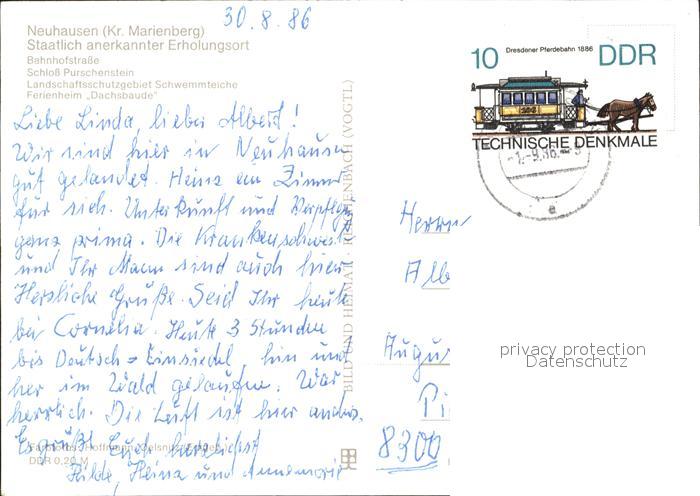 30.8.86
Neuhausen (Kr. Marienberg)
Staatlich anerkannter Erholungsort
Bahnhofstraße
Schloß Purschenstein
Landschaftsschutzgebiet Schwemmteiche
Ferienheim „Dachsbaude"
Liebe Linda, lieber Albert!
Wir sind hier in Neuhausen
gut gelandet. Heinz ein Zimmer
für sich. Unterkunft und Verpfleg.
ganz prima. Die Krankenschwest.
und Ihr Mann sind auch hier
Herzliche Grüße. Seid Ihr heute
bei Cornelia. Heute 3 Stunden
bis Deutsch=Einsiedel hin und
her im Wald gelaufen. War
herrlich. Die Luft ist hier anders.
Es grüßt Euch herzlichst
Hilde, Heinz und Annemarie
DDR 0,20 M
BILD UND HEIMAT · REICHENBACH (VOGTL)
10
Dresdener Pferdebahn 1886
DDR
TECHNISCHE DENKMALE
-1.-9.86
e
Herrn
Alb
Augu
Pi
8300
privacy protection
Datenschutz